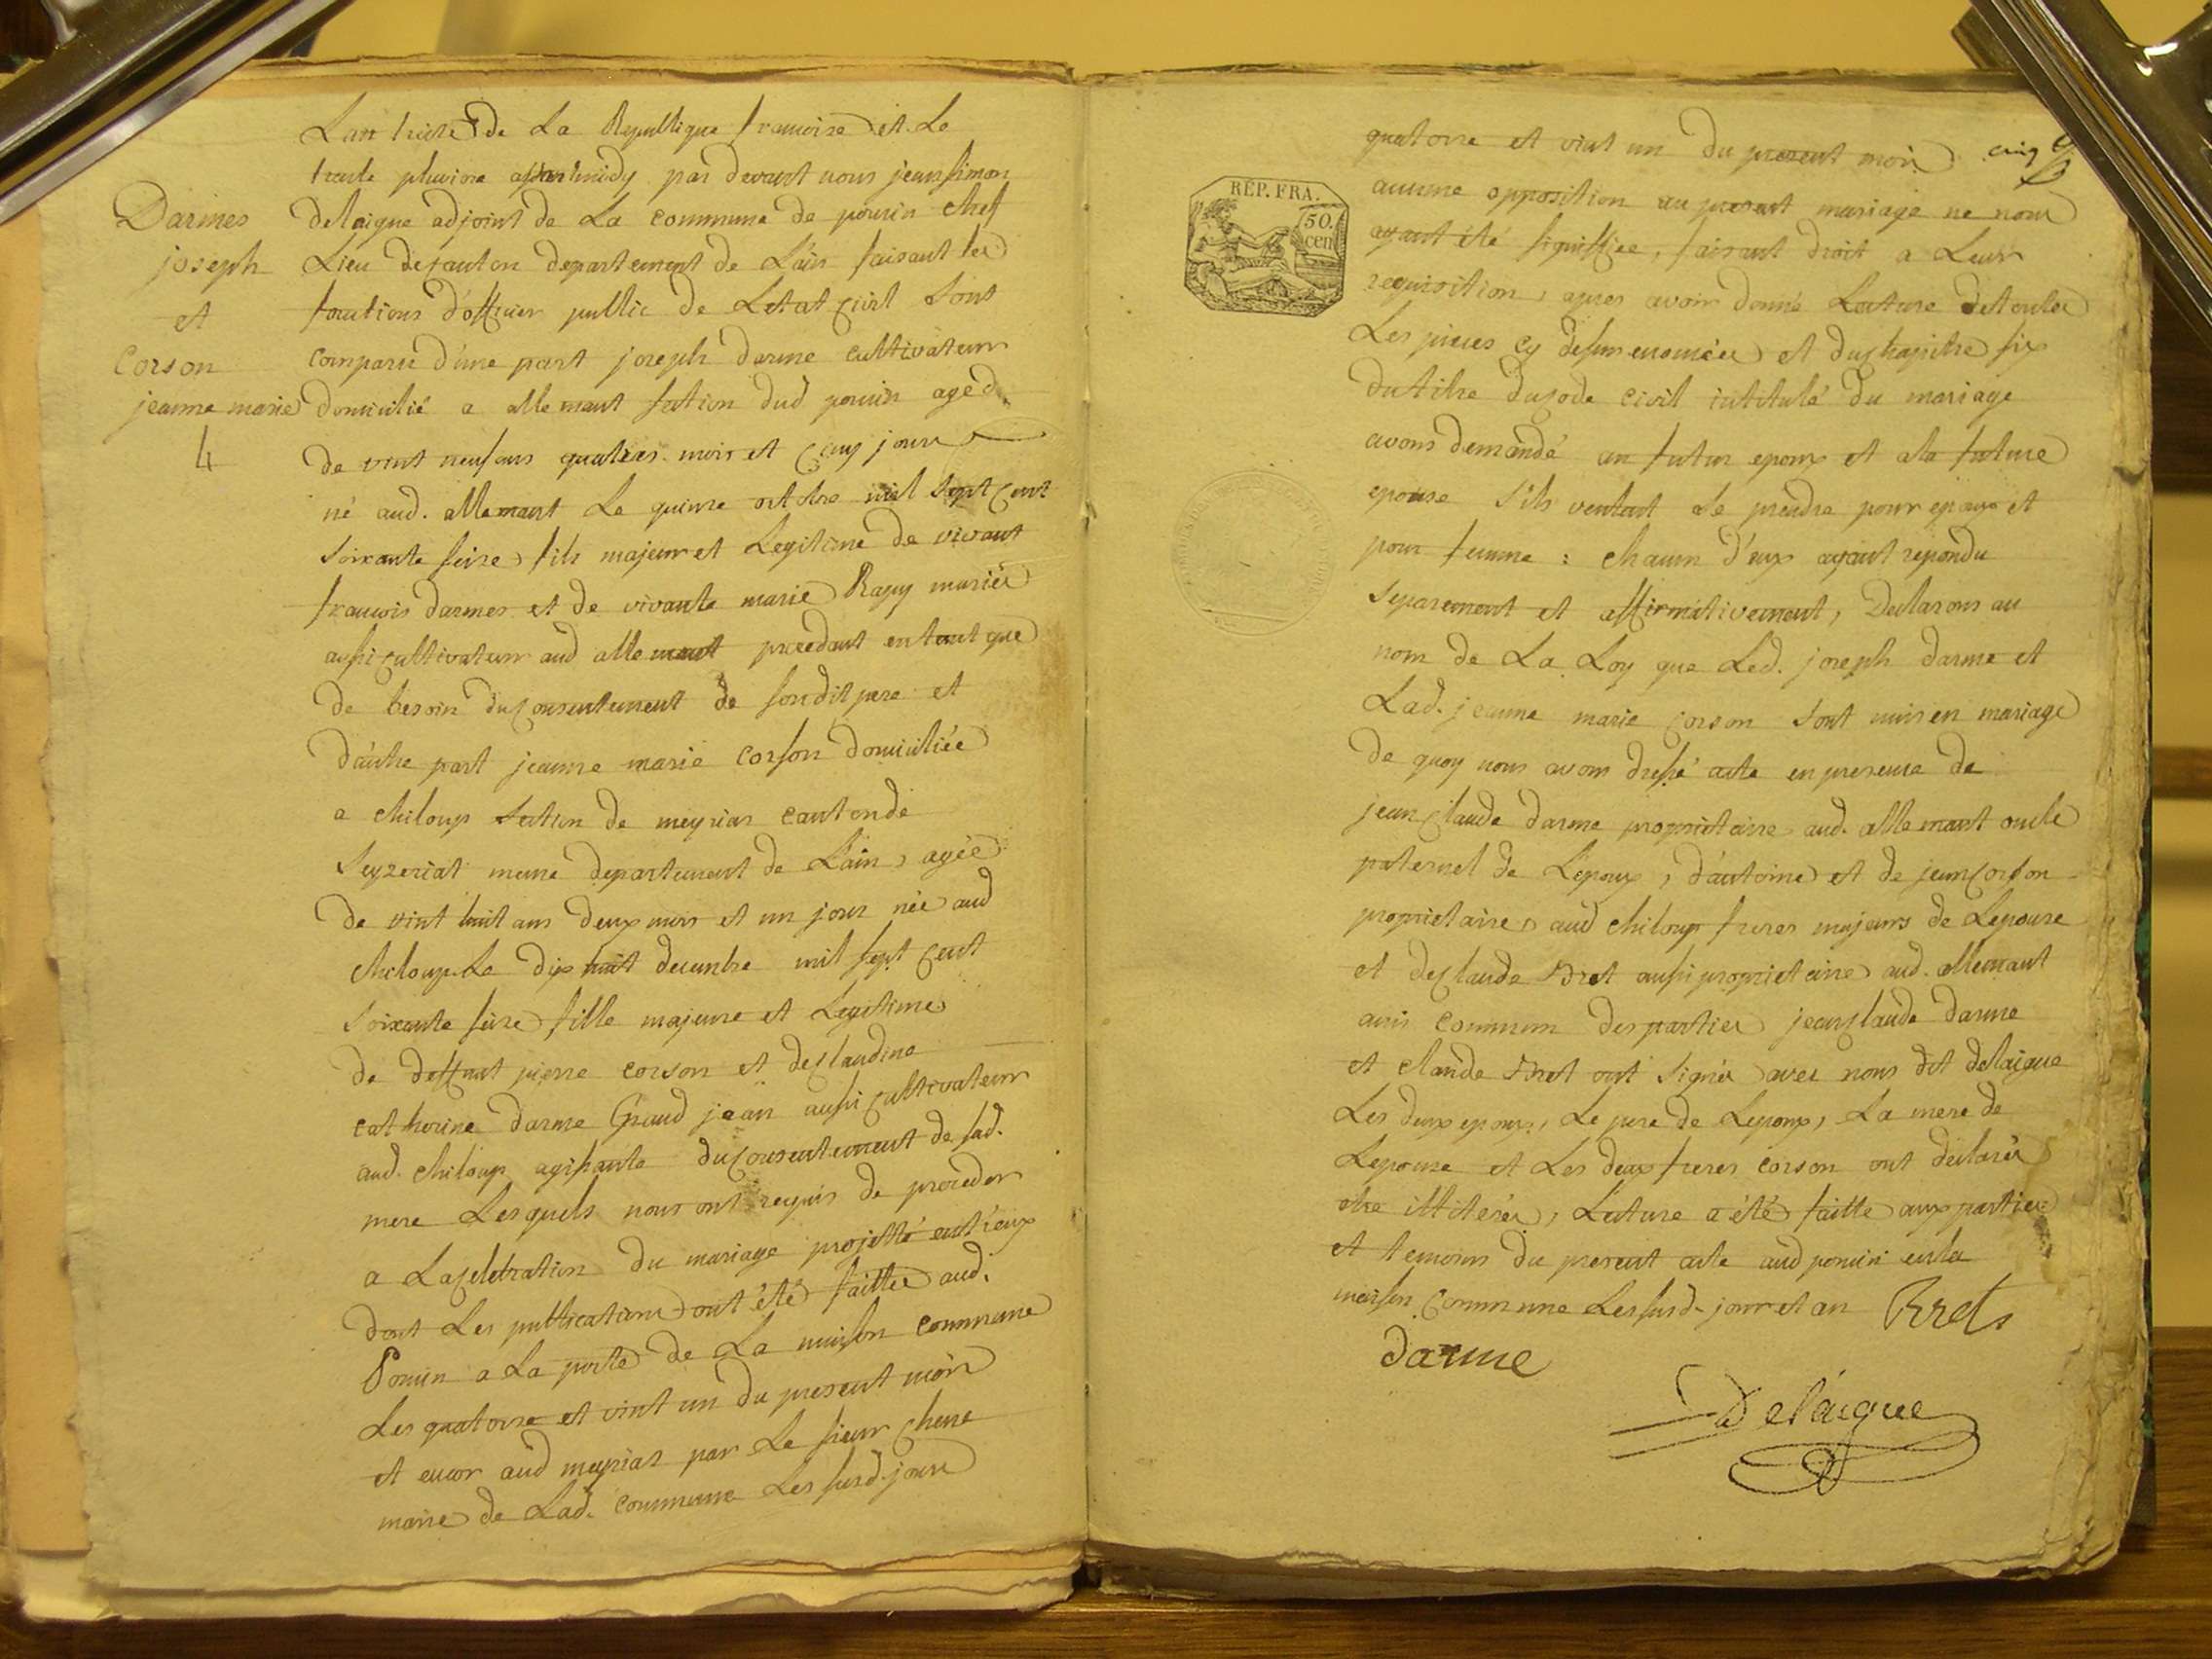 Lan treize de La Republique francoise et Le
trente pluviose apres midy par devant nous jean simon
Darmes
joseph
et
Corson
jeanne marie
4
delaigue adjoint de La commune de poncin chef
Lieu de canton departement de L'ain faisant les
fonctions d'officier public de Letat civil sont
comparu d'une part joseph darme cultivateur
domicilié a allemant section dud poncin agé
de vint neuf ans quatres mois et cinq jours
né aud. allemant Le quinze octobre mil sept cent
soixante seize fils majeur et Legitime de vivant
francois darmes et de vivante marie Rapy mariés
aussi cultivateur aud allemant procedant en tant que
de besoin du consentement de son dit pere et
d'autre part jeanne marie corson domiciliée
a chiloup section de meyriat canton de
Seyzeriat meme departement de L'ain, agée
de vint huit ans deux mois et un jour née aud
chiloup Le dix huit decembre mil sept cent
soixante seize fille majeure et Legitime
de deffunt pierre corson et de claudine
catherine darme Grand jean aussi cultivateur
aud. chiloup agissante du consentement de sad.
mere Lesquels nous ont requis de proceder
a La celebration du mariage projetté entr'eux
dont Les publications ont été faittes aud.
Poncin a La porte de La maison commune
Les quatorze et vint un du present mois
et encor aud meyriat par Le sieur chene
maire de Lad. commune Les susd. jours
quatorze et vint un du present mois
cinq
REP. FRA.
50.
cen
aucune opposition au present mariage ne nous
ayant été signiffiée, faisant droit a Leur
requisition, apres avoir donné Lecture de toutes
Les pieces cy dessus enoncées et du chapitre six
du titre du code civil intitulé du mariage
avons demandé au futur epoux et a la future
epouse s'ils veulent se prendre pour epoux et
pour femme : chacun d'eux ayant repondu
separement et affirmativement, Declarons au
nom de La Loy que Led. joseph darme et
Lad. jeanne marie corson sont unis en mariage
de quoy nous avons dressé acte en presence de
jean claude darme proprietaire aud. allemant oncle
paternel de L'epoux, d'antoine et de jean corson
proprietaires aud chiloup freres majeurs de Lepouse
et de claude Bret aussi proprietaire aud. allemant
amis commun des parties jean claude darme
et claude Bret ont signés avec nous dit delaigue
Les deux epoux, Le pere de Lepoux, La mere de
Lepouse et Les deux freres corson ont declarés
etre illiterés, Lecture a été faitte aux parties
et temoins du present acte aud poncin en la
maison commune Les susd. jour et an Bret
darme
Delaigue